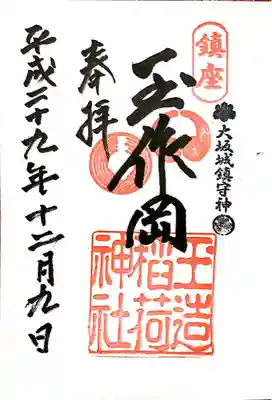 鎮座
大坂城鎮守神
玉作岡
奉拝
平成二十九年十二月九日
玉造
稲荷
神社